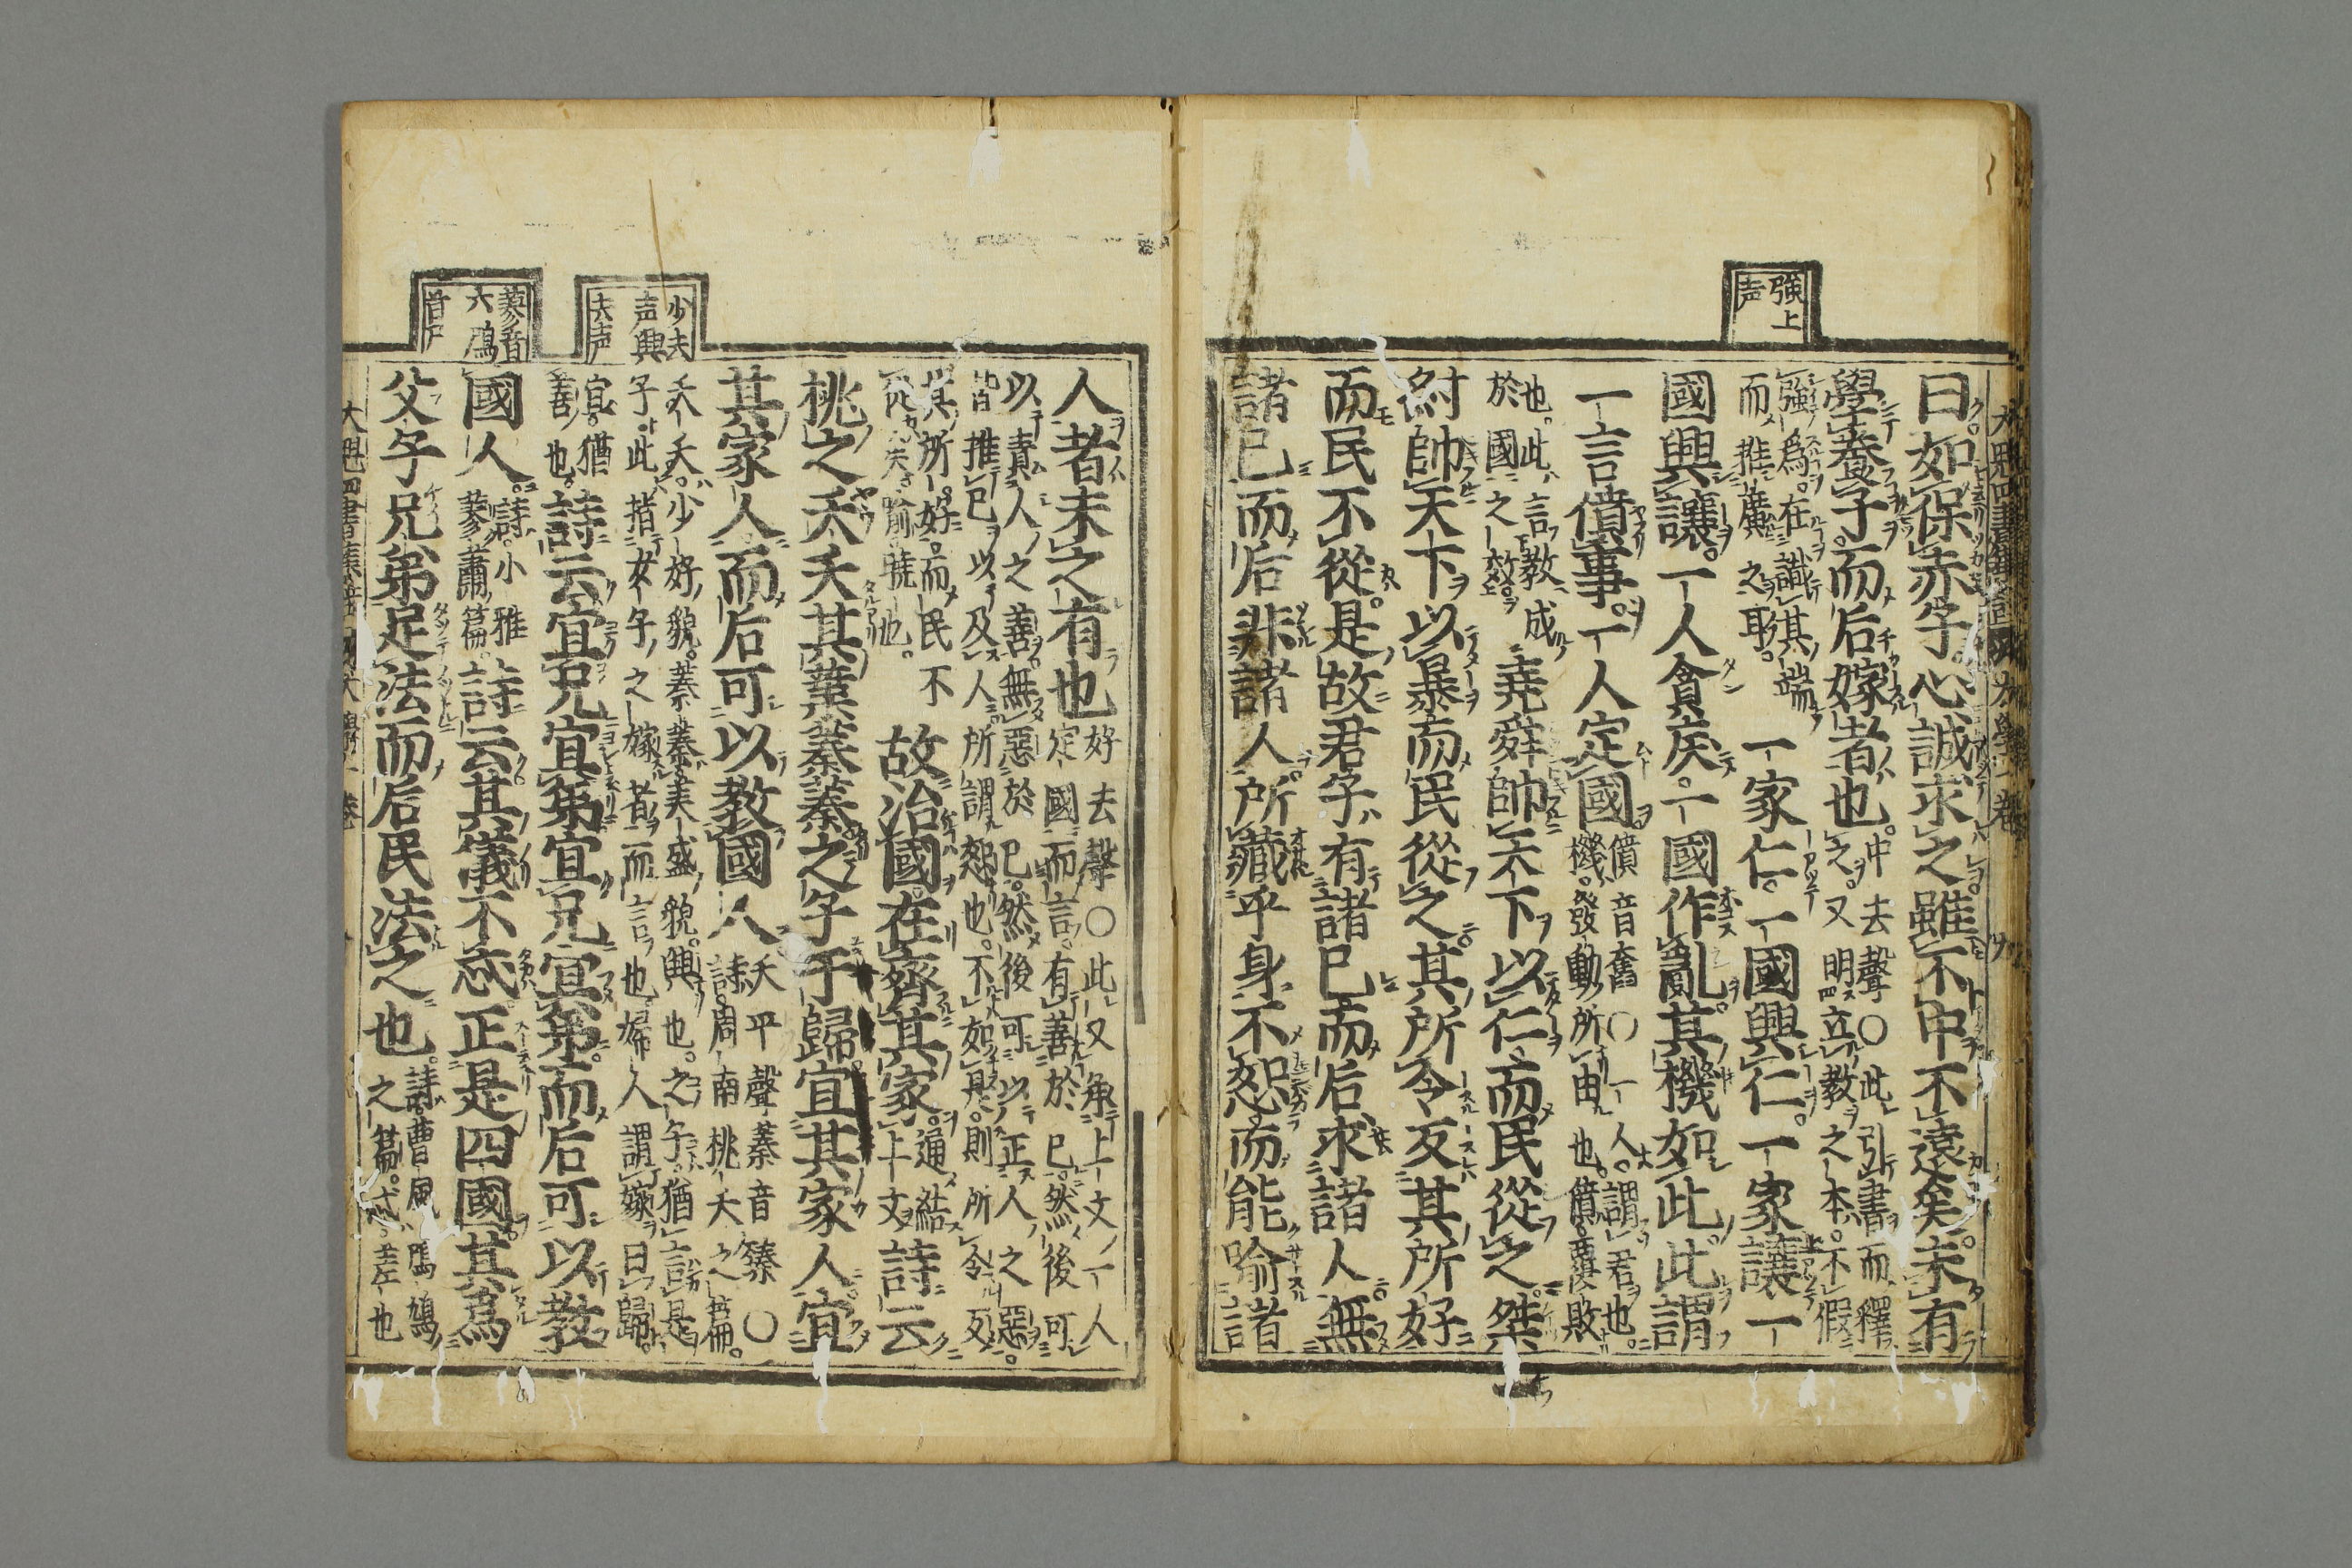 強上
声
大魁四書集註 大學一卷
曰如保赤子心誠求之雖不中不遠矣未有
學養子而后嫁者也中去聲○此引書而釋
之又明立教之本不假
強爲在識其端
而推廣之耳一家仁一國興仁一家讓一
國興讓一人貪戾一國作亂其機如此此謂
一言僨事一人定國僨音奮○一人謂君也
機發動所由也僨覆敗
也此言教成
於國之效堯舜帥天下以仁而民從之桀
紂帥天下以暴而民從之其所令反其所好
而民不從是故君子有諸己而后求諸人無
諸己而后非諸人所藏乎身不恕而能喻諸
少去
声興
去声
蓼音
六鳲
音尸
人者未之有也好去聲○此又承上文一人
定國而言有善於己然後可
以責人之善無惡於己然後可以正人之惡
皆推己以及人所謂恕也不如是則所令反
其所好而民不
從矣喻曉也故治國在齊其家通結
上文詩云
桃之夭夭其葉蓁蓁之子于歸宜其家人宜
其家人而后可以教國人夭平聲蓁音臻○
詩周南桃夭之篇
夭夭少好貌蓁蓁美盛貌興也之子猶言是
子此指女子之嫁者而言也婦人謂嫁曰歸
宜猶
善也詩云宜兄宜弟宜兄宜弟而后可以教
國人詩小雅
蓼蕭篇詩云其儀不忒正是四國其爲
父子兄弟足法而后民法之也詩曹風鳲鳩
之篇忒差也
大魁四書集註 大學一卷